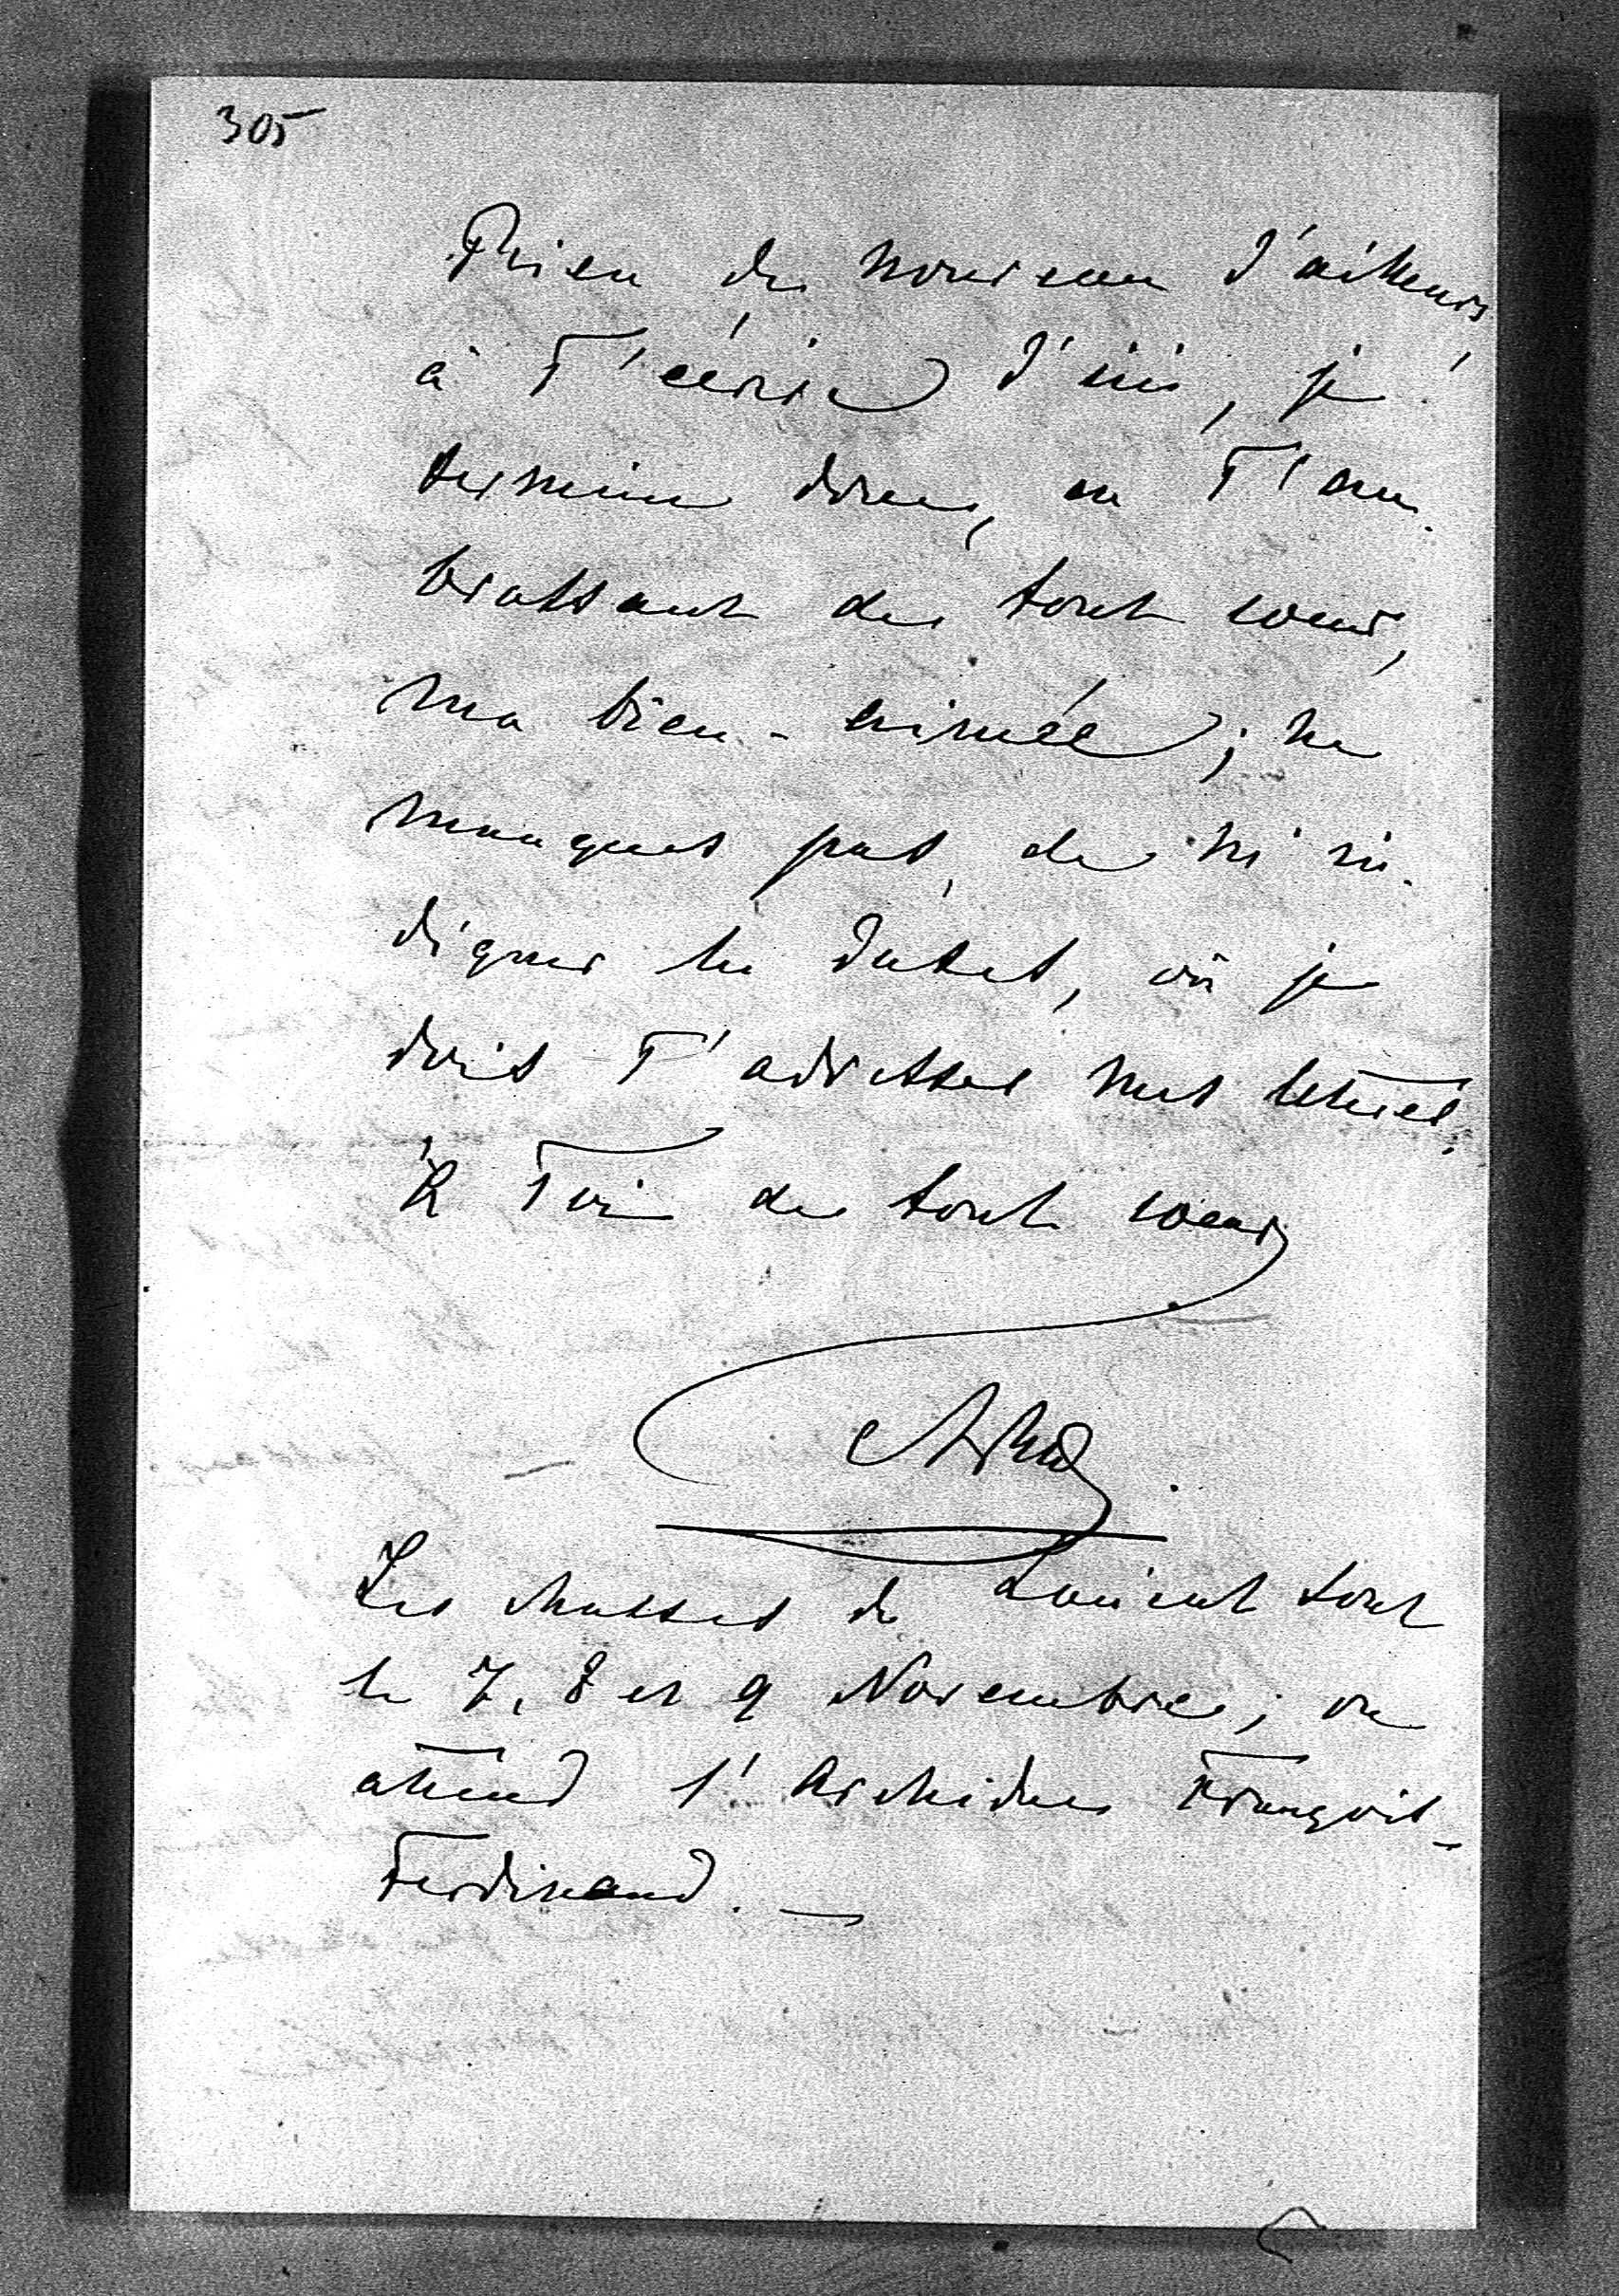 305
Rien de nouveau d'ailleurs
à T'écrire d'ici, je
termine donc, en T'em-
brassant de tout coeur,
ma bien-aimée; ne
manques pas, de m'in-
diquer les dates, où je
dois T'adresser mes lettres.
À Toi de tout coeur
Les chasses de sont
le 7, 8 et 9 Novembre; on
attend l'Archiduc François-
Ferdinand. —